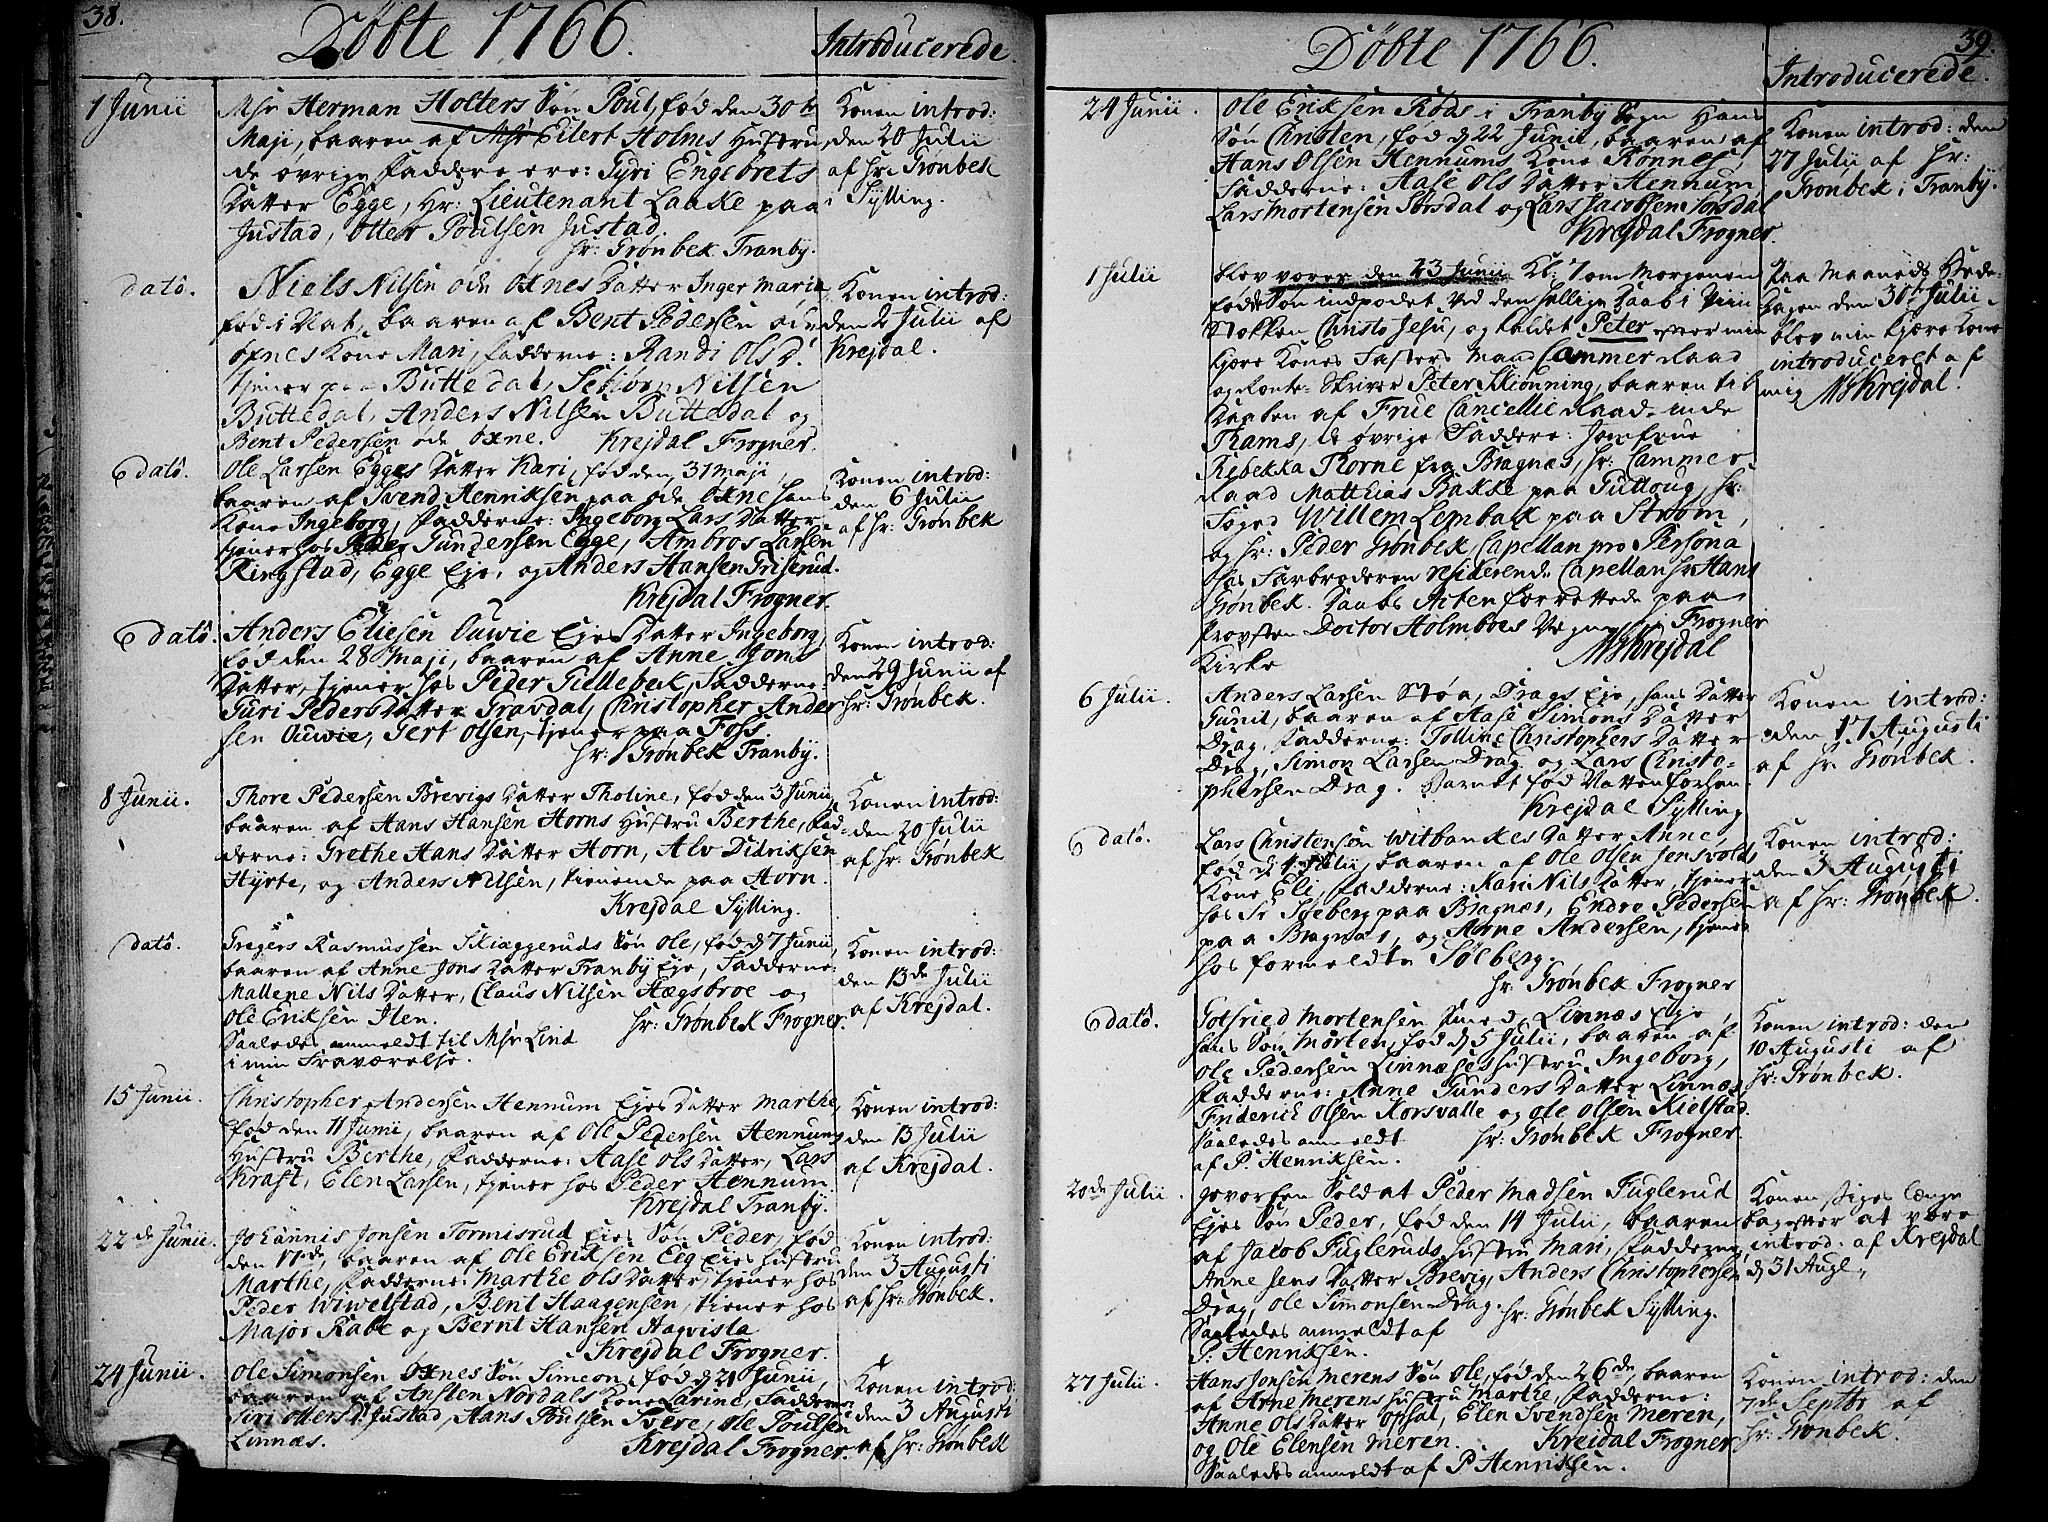 38.
Døbte 1766.
Introducerede.
1 Junii
Msr Herman Holters Søn Poul, fød den 30te
Maji, baaren af Msr Eilert Holms Hustru,
de øvrige Faddere ere: Gyri Engebrets
Datter Egge, Hr: Lieutenant Laake paa
Justad, Otter Poulsen Justad.
Hr: Grønbek Tranby.
Konen introd:
den 20 Julii
af Hr: Grønbek
i Sylling.
dato.
Niels Nilsen øde Oxnes Datter Inger Maria
fød i Nat, baaren af Bent Pedersen øde
Oxnes Kone Mari, Fadderne: Randi Ols D:
tjener paa Buttedal, Sebjørn Nilsen
Buttedal, Anders Nilsen Buttedal og
Bent Pedersen øde Oxne. Krejdal Frogner.
Konen introd:
den 2 Julii af
Krejdal.
6 dato.
Ole Larsen Egges Datter Kari, fød den 31 Maji,
baaren af Svend Henriksen paa øde Oxne hans
Kone Ingeborg, Fadderne: Ingeborg Lars Datter
tjener hos Peder Gundersen Egge, Ambros Larsen
Ringstad, Egge Eje, og Anders Hansen Griserud.
Krejdal Frogner.
Konen introd:
den 6 Julii
af Hr: Grønbek
6 dato.
Anders Eliesen Ouwie Ejes Datter Ingeborg
fød den 28 Maji, baaren af Anne Jons
Datter, tjener hos Peder Gillebek, Fadderne:
Guri Peders Datter Gravdal, Christopher Ander
sen Ouwie, Gert Olsen, tjener paa Foss.
Hr: Grønbek Tranby.
Konen introd:
den 29 Junii af
Hr: Grønbek.
8 Junii.
Thore Pedersen Brevigs Datter Tholine, fød den 3 Junii
baaren af Hans Hansen Horns Hustru Berthe, Fad-
derne: Grethe Hans Datter Horn, Alv Didriksen
Hyrte, og Anders Nilsen, tienende paa Horn.
Krejdal Sylling.
Konen introd:
den 20 Julii
af Hr: Grønbek
dato.
Gregers Rasmussen Skiæggeruds Søn Ole, fød d 7 Junii,
baaren af Anne Jons Datter Tranby Eje, Fadderne:
Mallene Nils Datter, Claus Nilsen Hægsbroe og
Ole Eriksen Ilen. Hr: Grønbek Frogner.
Saaledes anmeldt til Msr Lind
i min Fraværelse.
Konen introd:
den 13de Julii
af Krejdal.
15 Junii.
Christopher Andersen Hennum Ejes Datter Marthe,
fød den 11 Junii, baaren af Ole Pedersen Hennums
Hustru Berthe, Fadderne: Aase Ols Datter, Lars
Kraft, Elen Larsen, tjener hos Peder Hennum
Krejdal Tranby.
Konen introd:
den 13 Julii
af Krejdal.
22de Junii.
Johannis Jonsen Tormisrud Ejes Søn Peder, fød
den 17de, baaren af Ole Eriksen Eeg Ejes Hustru
Marthe, Fadderne: Marthe Ols Datter, tjener hos
Peder Wiwelstad, Bent Haagensen, tiener hos
Major Rabe og Bernt Hansen Hagvista
Krejdal Frogner.
Konen introd:
den 3 Augusti
af Hr: Grønbek.
24 Junii.
Ole Simonsen Oxnes Søn Simeon, fød d 21 Junii,
baaren af Ansten Nordals Kone Karine, Fadderne:
Siri Otters D: Justad, Hans Poulsen Tvere, Ole Poulsen
Linnæs. Krejdal Frogner.
Konen introd:
den 3 Augusti
af Hr: Grønbek
39.
Døbte 1766.
Introducerede.
24 Junii.
Ole Eriksen Røds i Tranby Sogn Hans
Søn Christen, fød d 22 Junii, baaren af
Hans Olsen Hennums Kone Rønnes
Fadderne: Aase Ols Datter Hennum,
Lars Mortensen Sørsdal og Lars Jacobsen Sørsdal
Krejdal Frogner.
Konen introd: den
27 Julii af Hr:
Grønbek i Tranby.
1 Julii
blev vores den 23 Junii Kl: 7 om Morgenen
fødde Søn indpodet ved den hellige Daab i Viin
Stokken Christo Jesu, og kaldet Peter efter min
kjere Kones Søsters Mand Cammer Raad
og Rente-Skriver Peter Skiønning, baaren til
Daaben af Frue Cancellie Raadinde
Thams, de øvrige Faddere: Jomfrue
Rebekka Thorne fra Bragnæs, Hr: Cammer
Raad Matthias Bakke paa Gulloug, Hr:
Foged Willem Lembak paa Strøm,
og Hr: Peder Grønbek, Capellan pro Persona
hos Farbroderen residerende Capellan Hr Hans
Grønbek. Daabs Acten forrettede paa
Provsten Doctor Holmboes Vegne i Frogner
Kirke MS Krejdal
Paa Maaneds Bede-
dagen den 30te Julii
blev min kjære Kone
introduceret af
mig MS Krejdal.
6 Julii.
Anders Larsen Støa, Drags Eje, hans Datter
Gunil, baaren af Aase Simons Datter
Drag, Fadderne: Tolline Christophers Datter
Drag, Simon Larsen Drag og Lars Christo-
phersen Drag. Barnet fød Natten forhen.
Krejdal Sylling
Konen introd:
den 17 Augusti
af Hr Grønbek.
6 dato.
Lars Christensøn Witbankes Datter Anne
fød d 4 Julii, baaren af Ole Olsen Jensvolds
Kone Eli, Fadderne: Kari Nils Datter, tjener
hos Sr Søeberg paa Bragnæs, Endre Pedersen
paa Bragnæs, og Arne Andersen, tjener
hos formeldte Sølberg.
Hr: Grønbek Frogner
Konen introd:
den 3 Augusti
af Hr: Grønbek.
6 dato.
Gotfried Mortensen Smed, Linnæs Eje
hans Søn Morten, fød d 5 Julii, baaren af
Ole Pedersen Linnæses Hustru Ingeborg,
Fadderne: Anne Gunders Datter Linnæs,
Friderich Olsen Korsvalle og Ole Olsen Kielstad.
Saaledes anmeldt Hr: Grønbek Frogner.
af P. Henriksen.
Konen introd: den
10 Augusti af
Hr: Grønbek.
20de Julii.
Gevorben Soldat Peder Madsen Fuglerud
Ejes Søn Peder, fød den 14 Julii, baaren
af Jacob Fugleruds Hustru Mari, Fadderne,
Anne Jens Datter Brevig, Anders Christophersen
Drag, Ole Simonsen Drag. Hr: Grønbek Sylling.
Saaledes anmeldt af
P: Henriksen.
Konen siges længe
bagefter at være
introd: af Krejdal
d 31 Aug:
27 Julii.
Hans Jonsen Merens Søn Ole, fød den 26de, baaren
af Arne Merens Hustru Marthe, Fadderne:
Anne Ols Datter Opsal, Elen Svendsen Meren,
og Ole Elensen Meren. Krejdal Frogner.
Saaledes anmeldt af P Henriksen.
Konen introd: den
7de Septbr af
Hr: Grønbek.